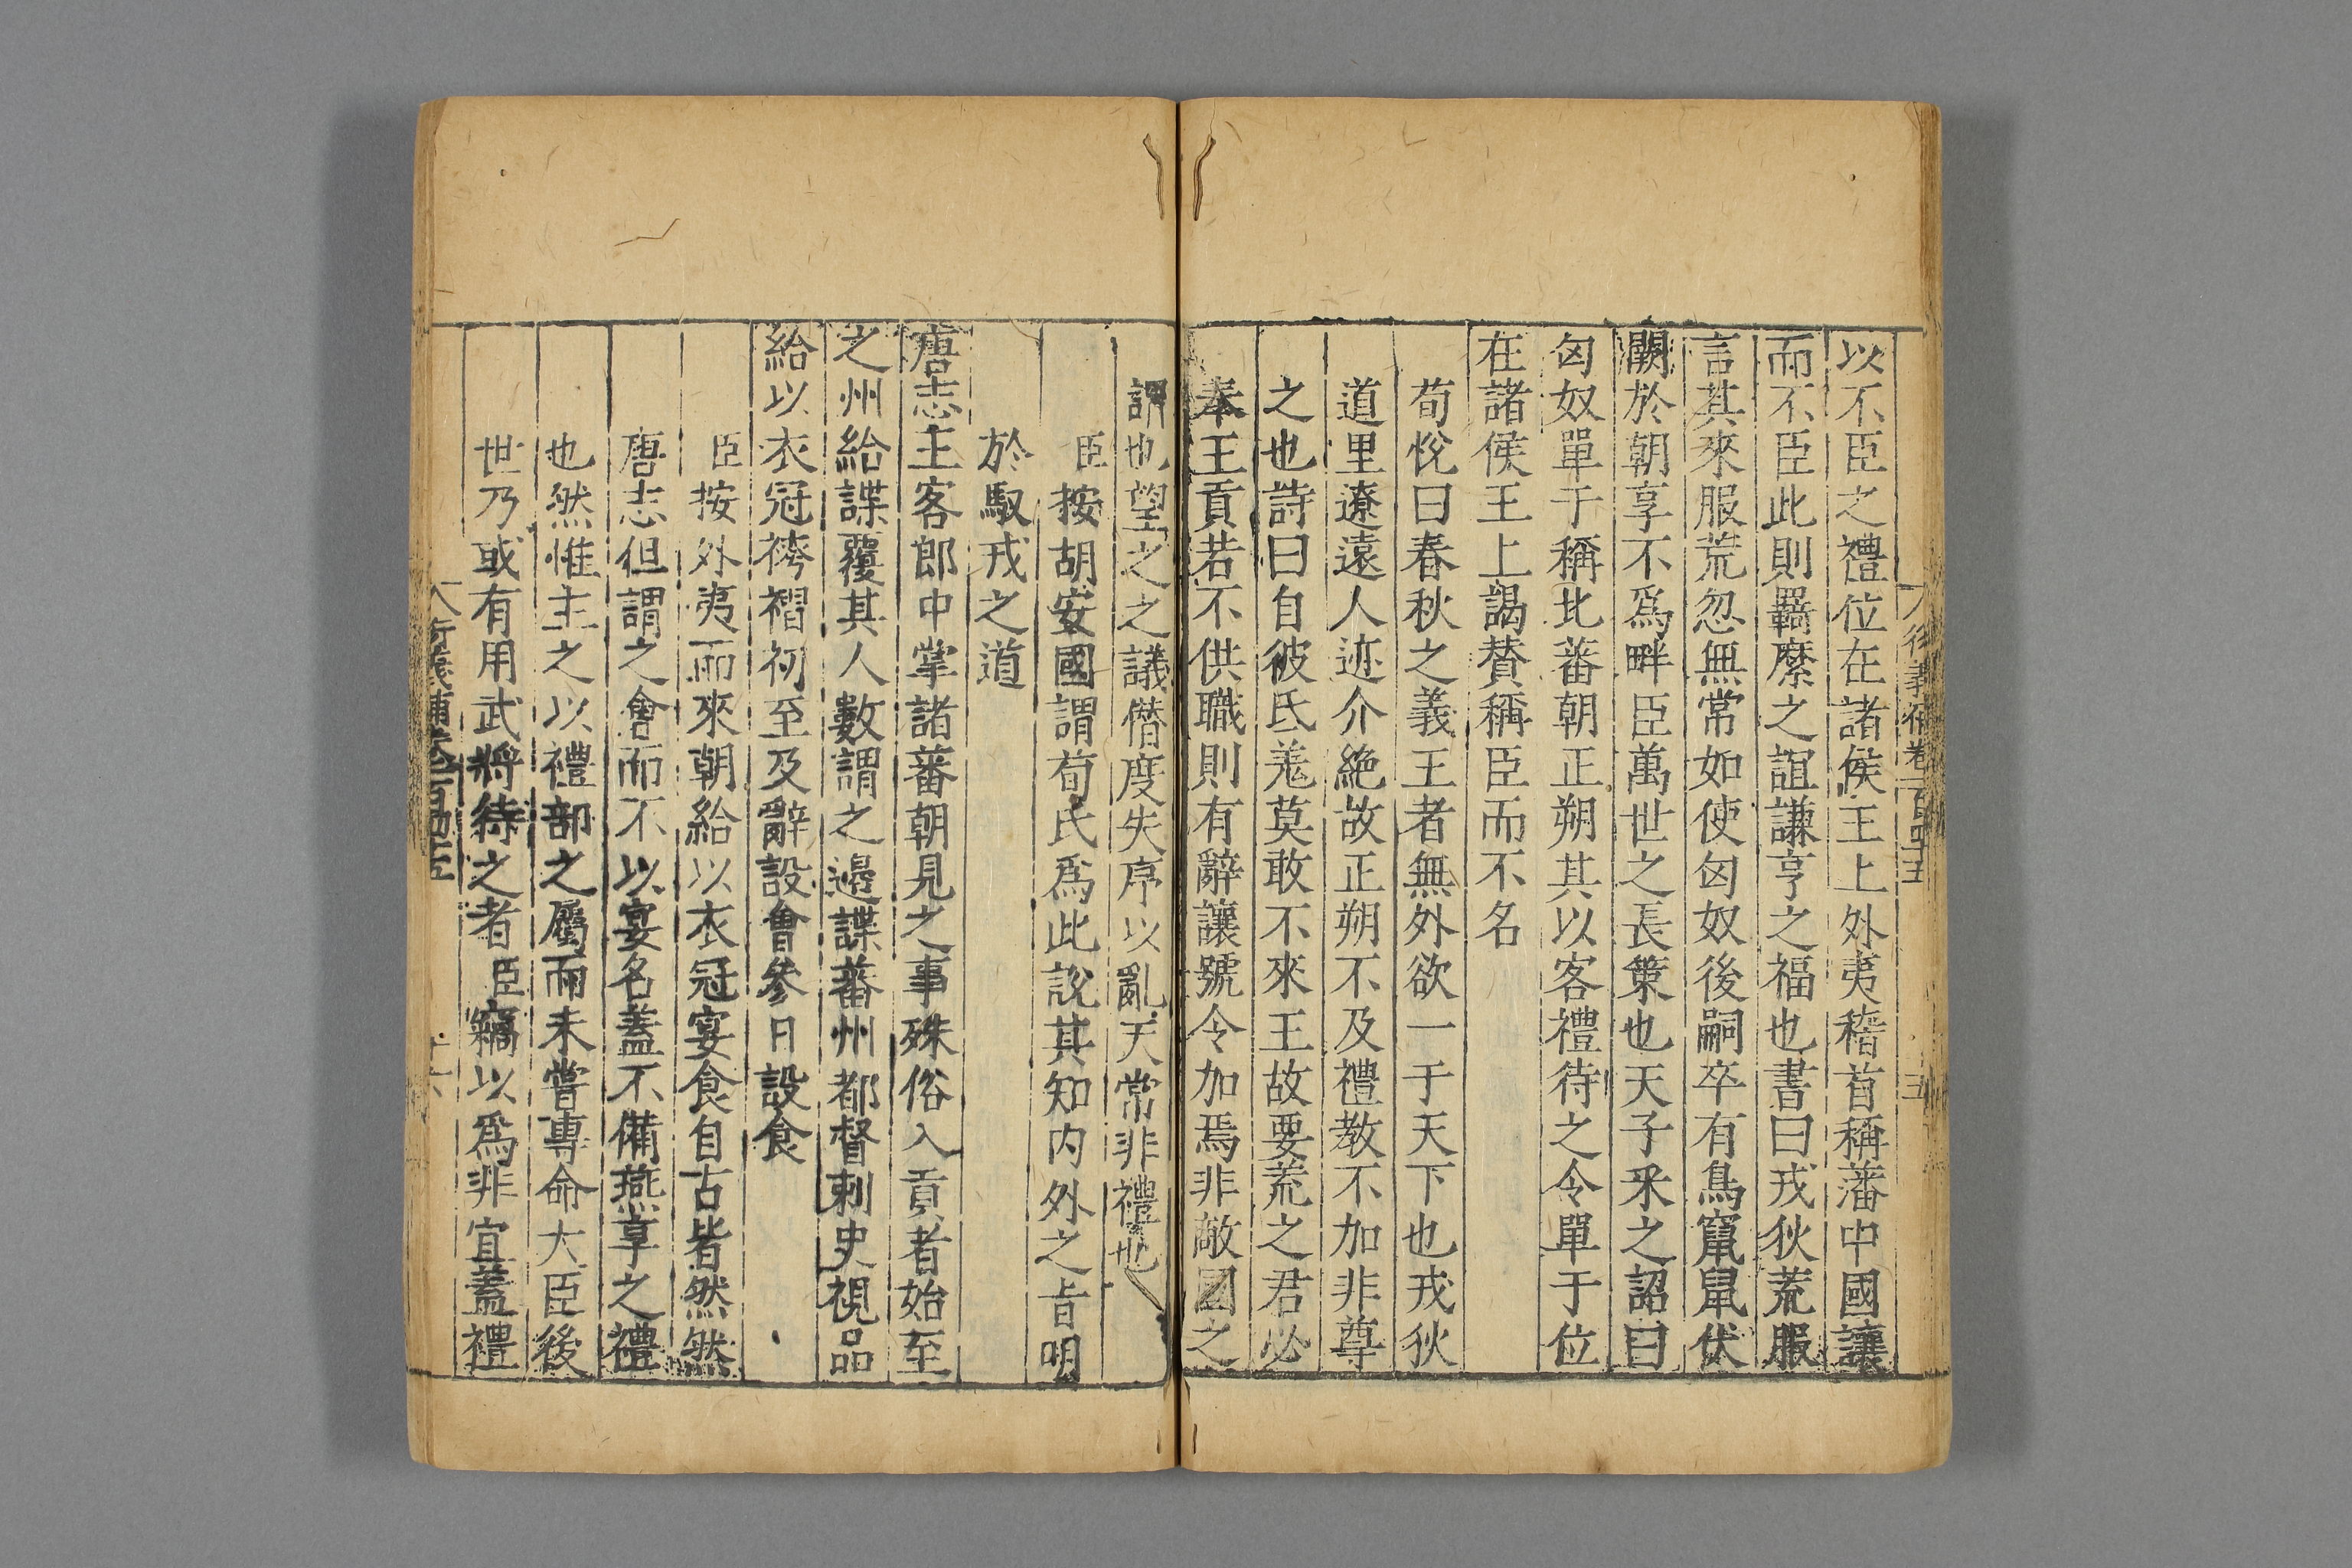 以不臣之禮位在諸侯王上外夷稽首稱藩中國讓
而不臣此則羈縻之誼謙亨之福也書曰戎狄荒服
言其來服荒忽無常如使匈奴後嗣卒有鳥竄鼠伏
闕於朝享不爲畔臣萬世之長策也天子采之詔曰
匈奴單于稱北蕃朝正朔其以客禮待之令單于位
在諸侯王上謁贊稱臣而不名
荀悅曰春秋之義王者無外欲一于天下也戎狄
道里遼遠人迹介絶故正朔不及禮教不加非尊
之也詩曰自彼氐羌莫敢不來王故要荒之君必
奉王貢若不供職則有辭讓號令加焉非敵國之
謂也望之之議僭度失序以亂天常非禮也
臣按胡安國謂荀氏爲此說其知内外之旨明
於馭戎之道
唐志主客郎中掌諸蕃朝見之事殊俗入貢者始至
之州給諜覆其人數謂之邊諜蕃州都督刺史視品
給以衣冠袴褶初至及辭設會參日設食
臣按外夷而來朝給以衣冠宴食自古皆然然
唐志但謂之會而不以宴名蓋不備燕享之禮
也然惟主之以禮部之屬而未嘗專命大臣後
世乃或有用武將待之者臣竊以爲非宜蓋禮